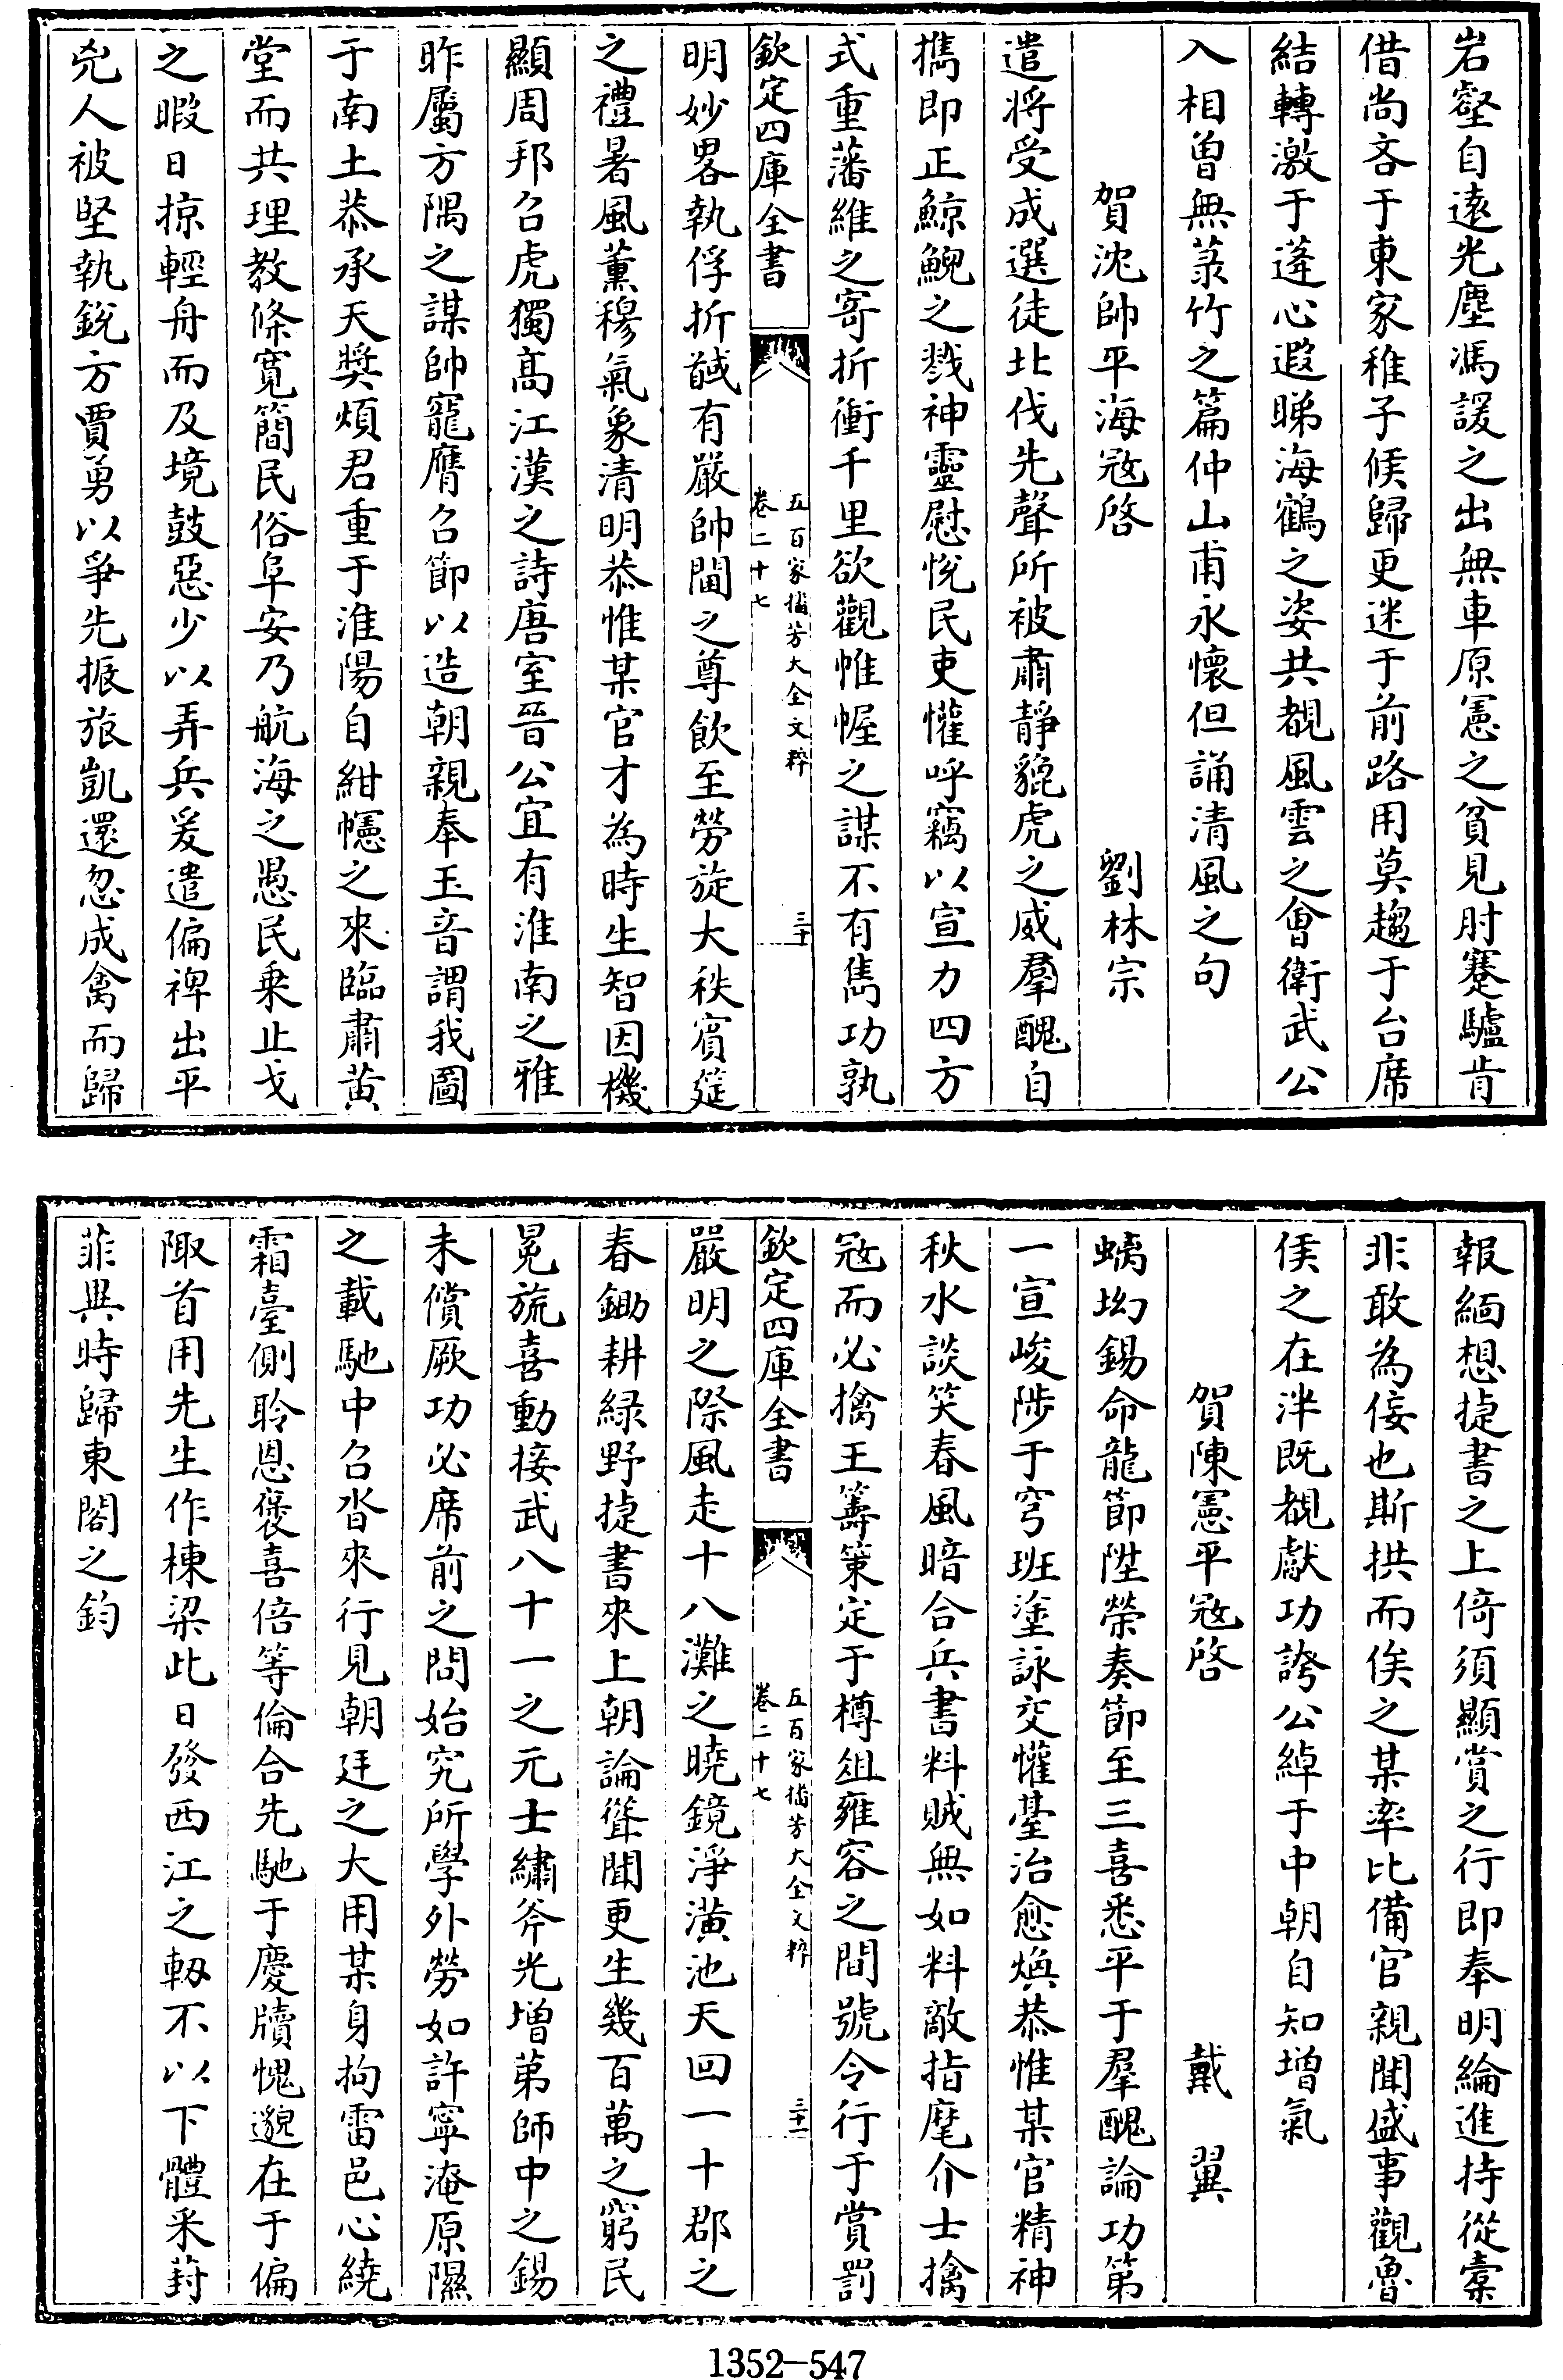 岩壑自逺光塵馮諼之出無車原憲之貧見肘蹇驢肯
借尚吝于東家稚子候歸更迷于前路用莫趨于台席
結轉激于蓬心遐睇海鶴之姿共覩風雲之會衛武公
入相曽無菉竹之篇仲山甫永懐但誦清風之句
賀沈帥平海冦啓 劉林宗
遣將受成選徒北伐先聲所被肅靜貔虎之威羣醜自
擕即正鯨鯢之戮神靈慰恱民吏懽呼竊以宣力四方
式重藩維之寄折衝千里欲觀帷幄之謀不有雋功孰
欽定四庫全書 五百家播芳大全文粹 卷二十七 三十
明妙畧執俘折馘有嚴帥閫之尊飲至勞旋大秩賓筵
之禮暑風薰穆氣象清明恭惟某官才為時生智因機
顯周邦召虎獨髙江漢之詩唐室晉公宜有淮南之雅
昨屬方隅之謀帥寵膺召節以造朝親奉玉音謂我圖
于南土恭承天奬煩君重于淮陽自紺幰之來臨肅黄
堂而共理教條寛簡民俗阜安乃航海之愚民乗止戈
之暇日掠輕舟而及境鼓惡少以弄兵爰遣偏禆出平
兇人被堅執鋭方賈勇以爭先振旅凱還忽成禽而歸
報緬想捷書之上倚須顯賞之行即奉明綸進持從橐
非敢為佞也斯拱而俟之某率比備官親聞盛事觀魯
侯之在泮既覩獻功誇公綽于中朝自知増氣
賀陳憲平冦啓 戴翼
螭坳錫命龍節陞榮奏節至三喜悉平于羣醜論功第
一宣峻陟于穹班塗詠交懽臺治愈煥恭惟某官精神
秋水談笑春風暗合兵書料賊無如料敵指麾介士擒
冦而必擒王籌策定于樽俎雍容之間號令行于賞罰
欽定四庫全書 五百家播芳大全文粹 卷二十七 三十一
嚴明之際風走十八灘之曉鏡淨潢池天回一十郡之
春鋤耕緑野捷書來上朝論聳聞更生幾百萬之窮民
冕旒喜動接武八十一之元士繡斧光増第師中之錫
未償厥功必席前之問始究所學外勞如許寧淹原隰
之載馳中召沓來行見朝廷之大用某身拘雷邑心繞
霜臺側聆恩褒喜倍等倫合先馳于慶牘愧邈在于偏
陬首用先生作棟梁此日發西江之軔不以下體采葑
菲異時歸東閣之鈞
1352-547